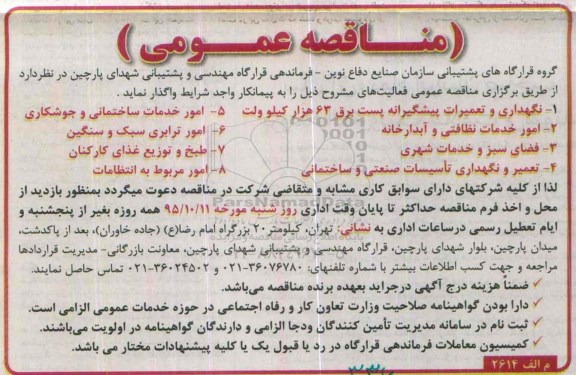 (مناقصه عمومی)
گروه قرارگاه های پشتیبانی سازمان صنایع دفاع نوین - فرماندهی قرارگاه مهندسی و پشتیبانی شهدای پارچین در نظردارد
از طریق برگزاری مناقصه عمومی فعالیت‌های مشروح ذیل را به پیمانکار واجد شرایط واگذار نماید .
۱- نگهداری و تعمیرات پیشگیرانه پست برق ۶۳ هزار کیلو ولت
۵- امور خدمات ساختمانی و جوشکاری
۲- امور خدمات نظافتی و آبدارخانه
۶- امور ترابری سبک و سنگین
۳- فضای سبز و خدمات شهری
۷- طبخ و توزیع غذای کارکنان
۴- تعمیر و نگهداری تأسیسات صنعتی و ساختمانی
۸- امور مربوط به انتظامات
لذا از کلیه شرکتهای دارای سوابق کاری مشابه و متقاضی شرکت در مناقصه دعوت میگردد بمنظور بازدید از
محل و اخذ فرم مناقصه حداکثر تا پایان وقت اداری روز شنبه مورخه ۹۵/۱۰/۱۱ همه روزه بغیر از پنجشنبه و
ایام تعطیل رسمی درساعات اداری به نشانی: تهران، کیلومتر ۲۰ بزرگراه امام رضا(ع) (جاده خاوران)، بعد از پاکدشت،
میدان پارچین، بلوار شهدای پارچین، قرارگاه مهندسی و پشتیبانی شهدای پارچین، معاونت بازرگانی- مدیریت قراردادها
مراجعه و جهت کسب اطلاعات بیشتر با شماره تلفنهای: ۳۶۰۷۶۷۸۰-۰۲۱ و ۳۶۰۲۴۵۰۲-۰۲۱ تماس حاصل نمایند.
✓ ضمناً هزینه درج آگهی درجراید بعهده برنده مناقصه می‌باشد.
✓ دارا بودن گواهینامه صلاحیت وزارت تعاون کار و رفاه اجتماعی در حوزه خدمات عمومی الزامی است.
✓ ثبت نام در سامانه مدیریت تأمین کنندگان ودجا الزامی و دارندگان گواهینامه در اولویت می‌باشند.
✓ کمیسیون معاملات فرماندهی قرارگاه در رد یا قبول یک یا کلیه پیشنهادات مختار می باشد.
م الف ۲۶۱۴
ParsNamadData